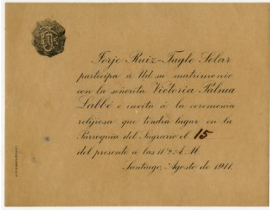 Jorje Ruiz-Tagle Solar
participa á Ud. su matrimonio
con la señorita Victoria Palma
Labbé e invita á la ceremonia
religiosa que tendrá lugar en la
Parroquia del Sagrario el 15
del presente á las A.M.
Santiago, Agosto de 1911.